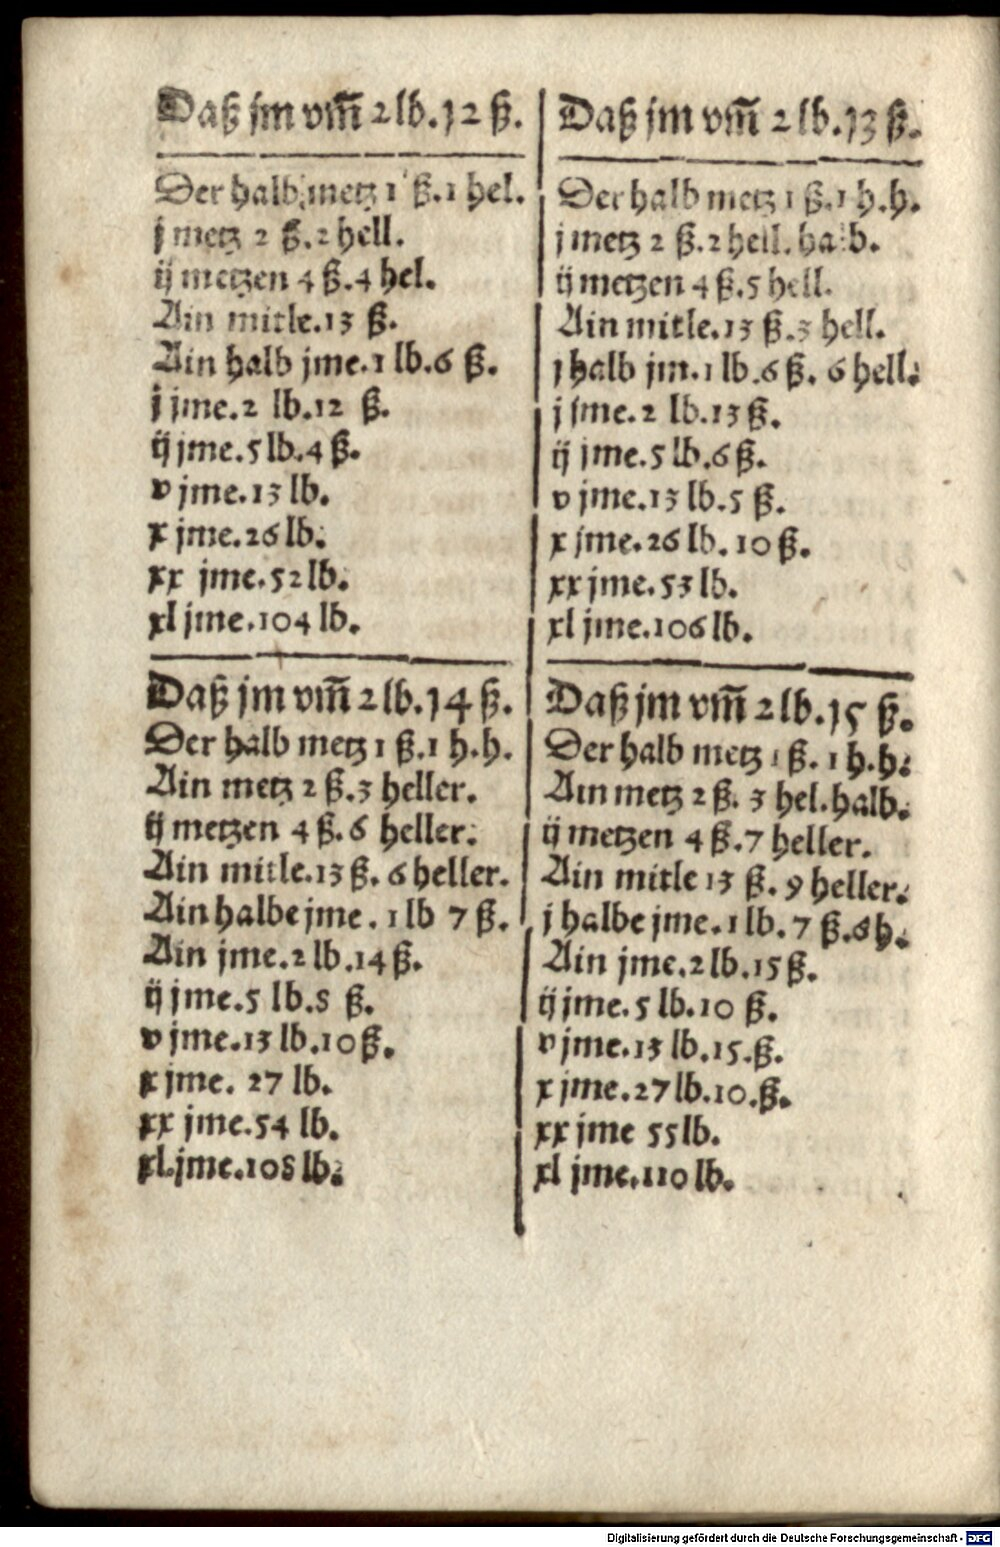 Daß jm vm̃ 2 lb. 12 ß.
Der halb metz 1 ß. 1 hel.
j metz 2 ß. 2 hell.
ij metzen 4 ß. 4 hel.
Ain mitle. 13 ß.
Ain halb jme. 1 lb. 6 ß.
j jme. 2 lb. 12 ß.
ij jme. 5 lb. 4 ß.
v jme. 13 lb.
x jme. 26 lb.
xx jme. 52 lb.
xl jme. 104 lb.
Daß jm vm̃ 2 lb. 13 ß.
Der halb metz 1 ß. 1 h. h.
j metz 2 ß. 2 hell. halb.
ij metzen 4 ß. 5 hell.
Ain mitle. 13 ß. 3 hell.
j halb jm. 1 lb. 6 ß. 6 hell.
j jme. 2 lb. 13 ß.
ij jme. 5 lb. 6 ß.
v jme. 13 lb. 5 ß.
x jme. 26 lb. 10 ß.
xx jme. 53 lb.
xl jme. 106 lb.
Daß jm vm̃ 2 lb. 14 ß.
Der halb metz 1 ß. 1 h. h.
Ain metz 2 ß. 3 heller.
ij metzen 4 ß. 6 heller.
Ain mitle. 13 ß. 6 heller.
Ain halbe jme. 1 lb 7 ß.
Ain jme. 2 lb. 14 ß.
ij jme. 5 lb. 8 ß.
v jme. 13 lb. 10 ß.
x jme. 27 lb.
xx jme. 54 lb.
xl. jme. 108 lb.
Daß jm vm̃ 2 lb. 15 ß.
Der halb metz 1 ß. 1 h. h.
Ain metz 2 ß. 3 hel. halb.
ij metzen 4 ß. 7 heller.
Ain mitle 13 ß. 9 heller.
j halbe jme. 1 lb. 7 ß. 6 h.
Ain jme. 2 lb. 15 ß.
ij jme. 5 lb. 10 ß.
v jme. 13 lb. 15. ß.
x jme. 27 lb. 10. ß.
xx jme 55 lb.
xl jme. 110 lb.
Digitalisierung gefördert durch die Deutsche Forschungsgemeinschaft - DFG